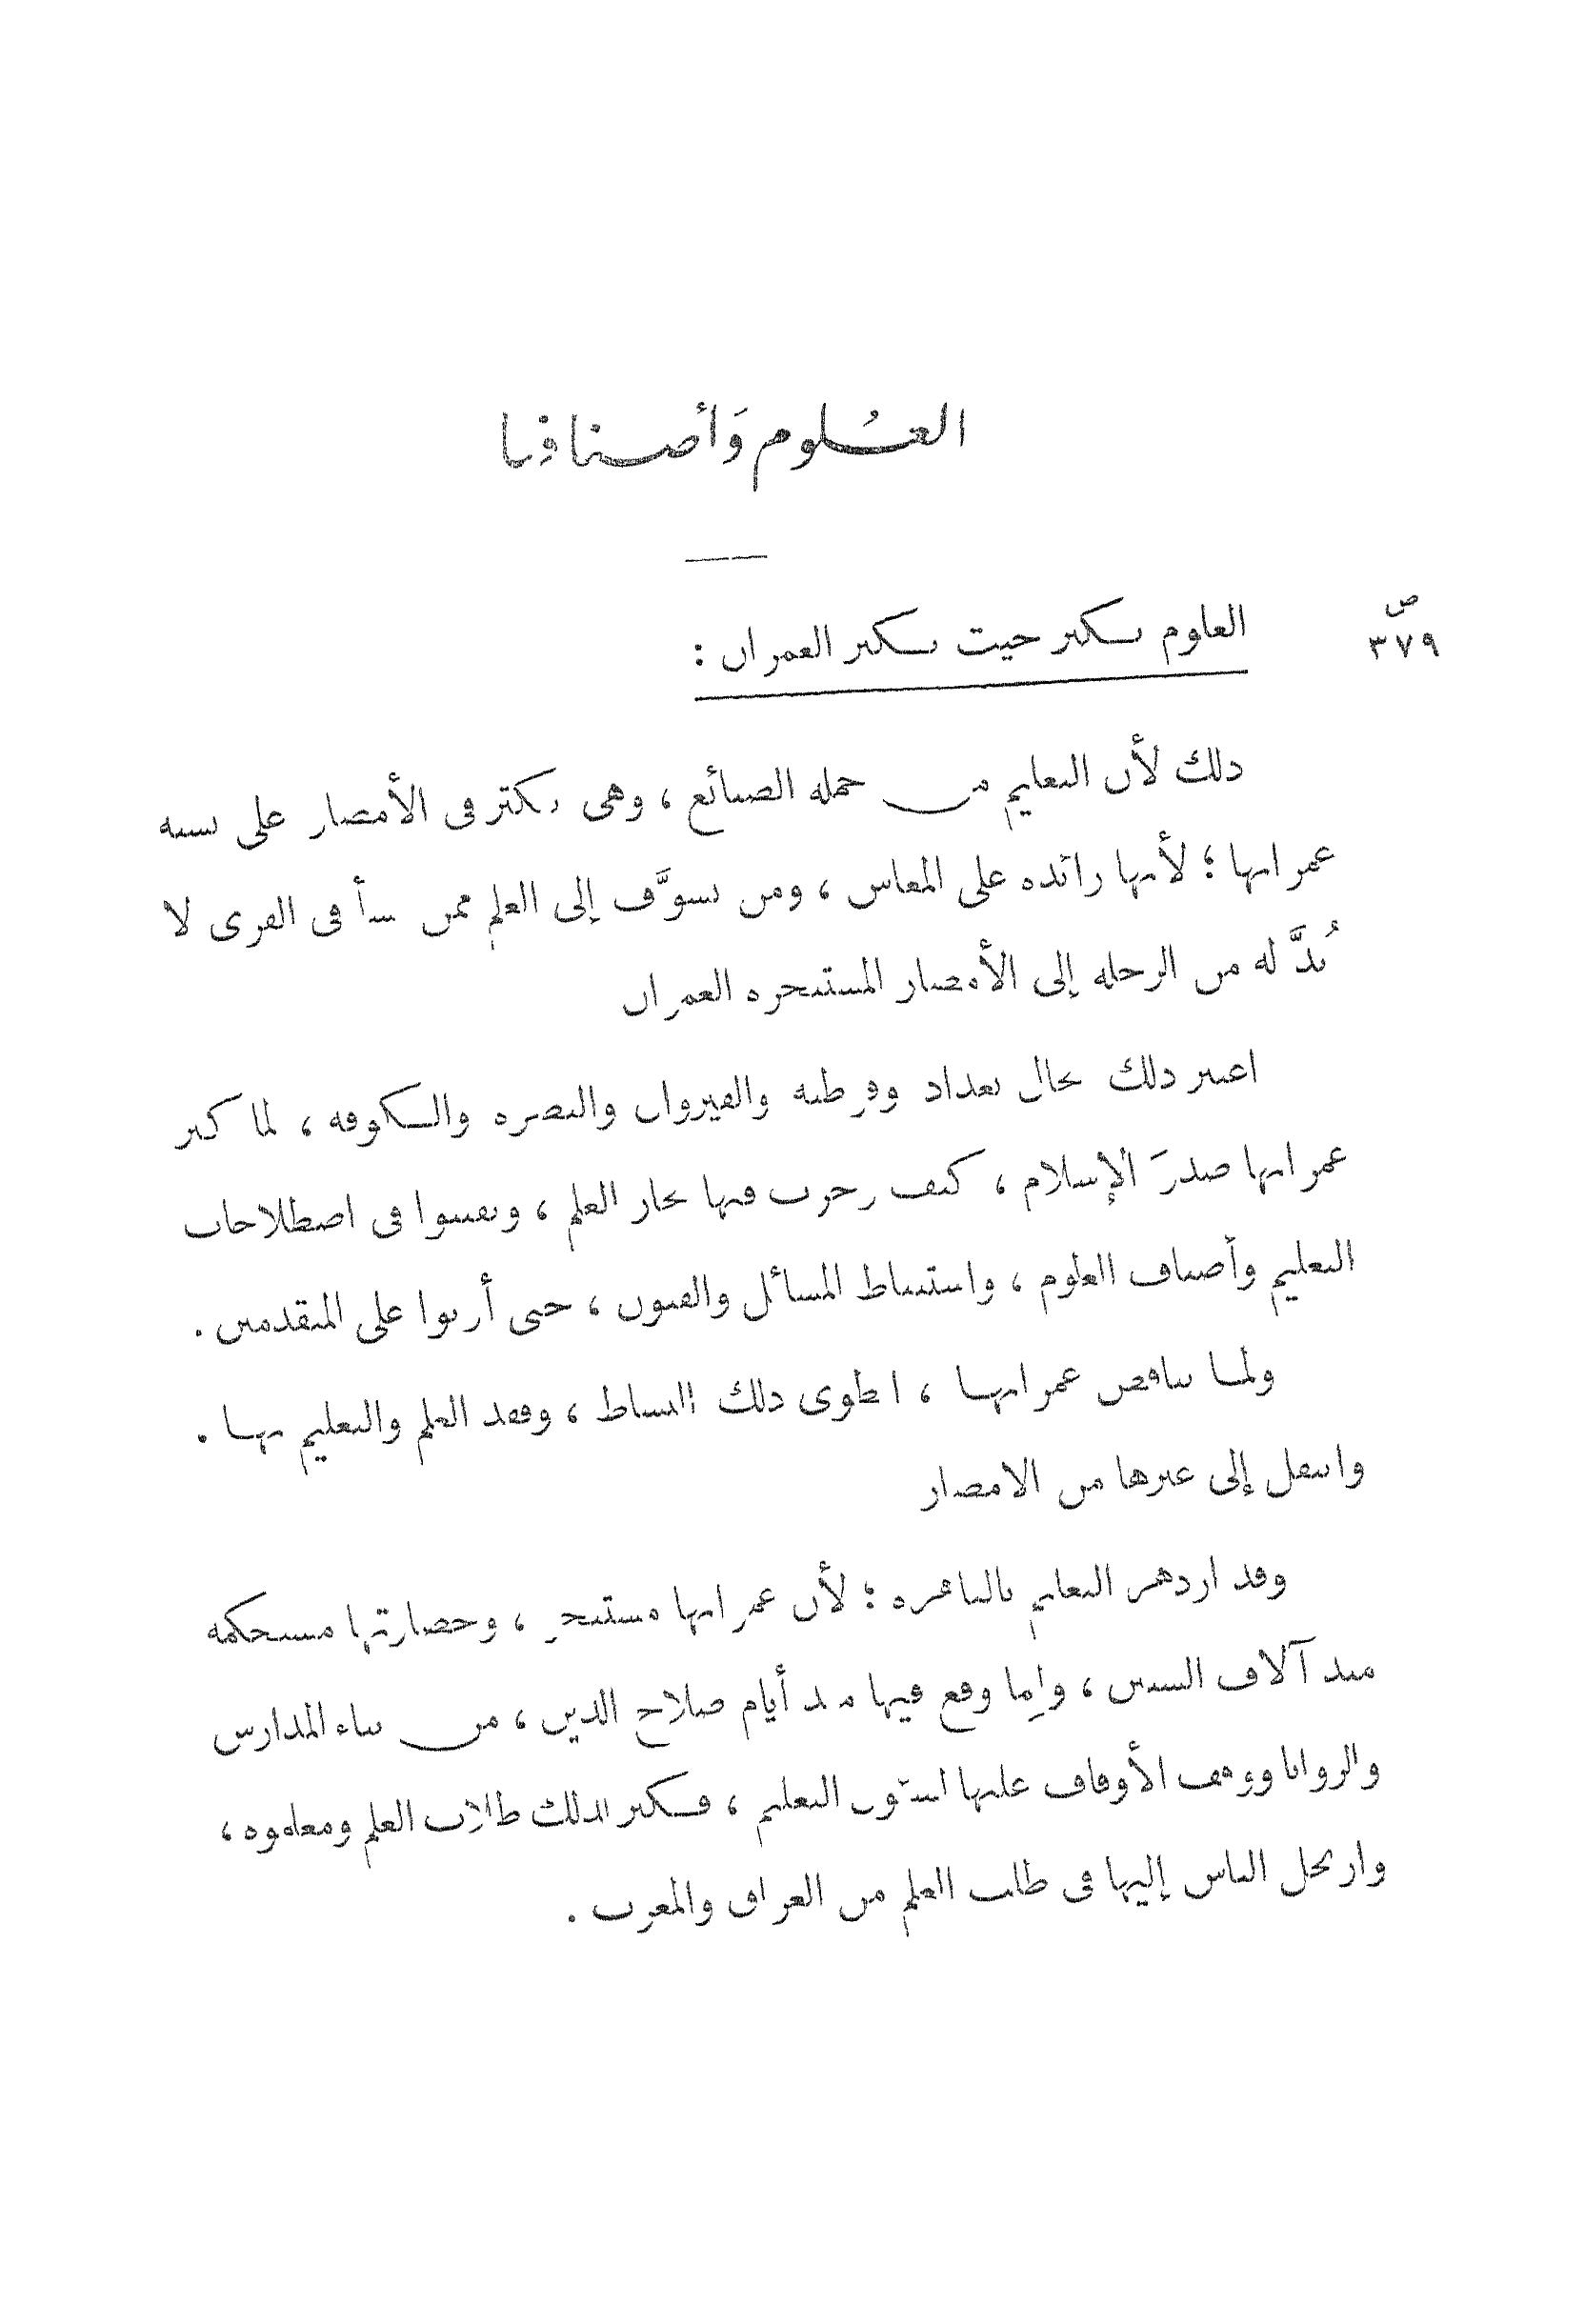 العلُوم وَأصنافها
ص
٣٧٩
العلوم تكثر حيث يكثر العمران :
ذلك لأن التعليم من جملة الصنائع ، وهى تكثر فى الأمصار على نسبة
عمرانها ؛ لأنها زائدة على المعاش ، ومن تشوَّف إلى العلم ممن نشأ فى القرى لا
بُدَّ له من الرحلة إلى الأمصار المستبحرة العمران
اعتبر ذلك بحال بغداد وقرطبة والقيروان والبصرة والكوفة ، لما كثر
عمرانها صدرَ الإسلام ، كيف زخرت فيها بحار العلم ، وتفننوا فى اصطلاحات
التعليم وأصناف العلوم ، واستنباط المسائل والفنون ، حتى أربوا على المتقدمين .
ولما تناقص عمرانها ، انطوى ذلك البساط ، وفقد العلم والتعليم بها .
وانتقل إلى غيرها من الامصار
وقد ازدهر التعليم بالقاهرة ؛ لأن عمرانها مستبحر ، وحضارتها مستحكمة
منذ آلاف السنين ، ولِما وقع فيها منذ أيام صلاح الدين ، من بناء المدارس
والزوايا ووقف الأوقاف عليها لشئون التعليم ، فكثر لذلك طلاب العلم ومعلموه ،
وارتحل الناس إليها فى طلب العلم من العراق والمغرب .